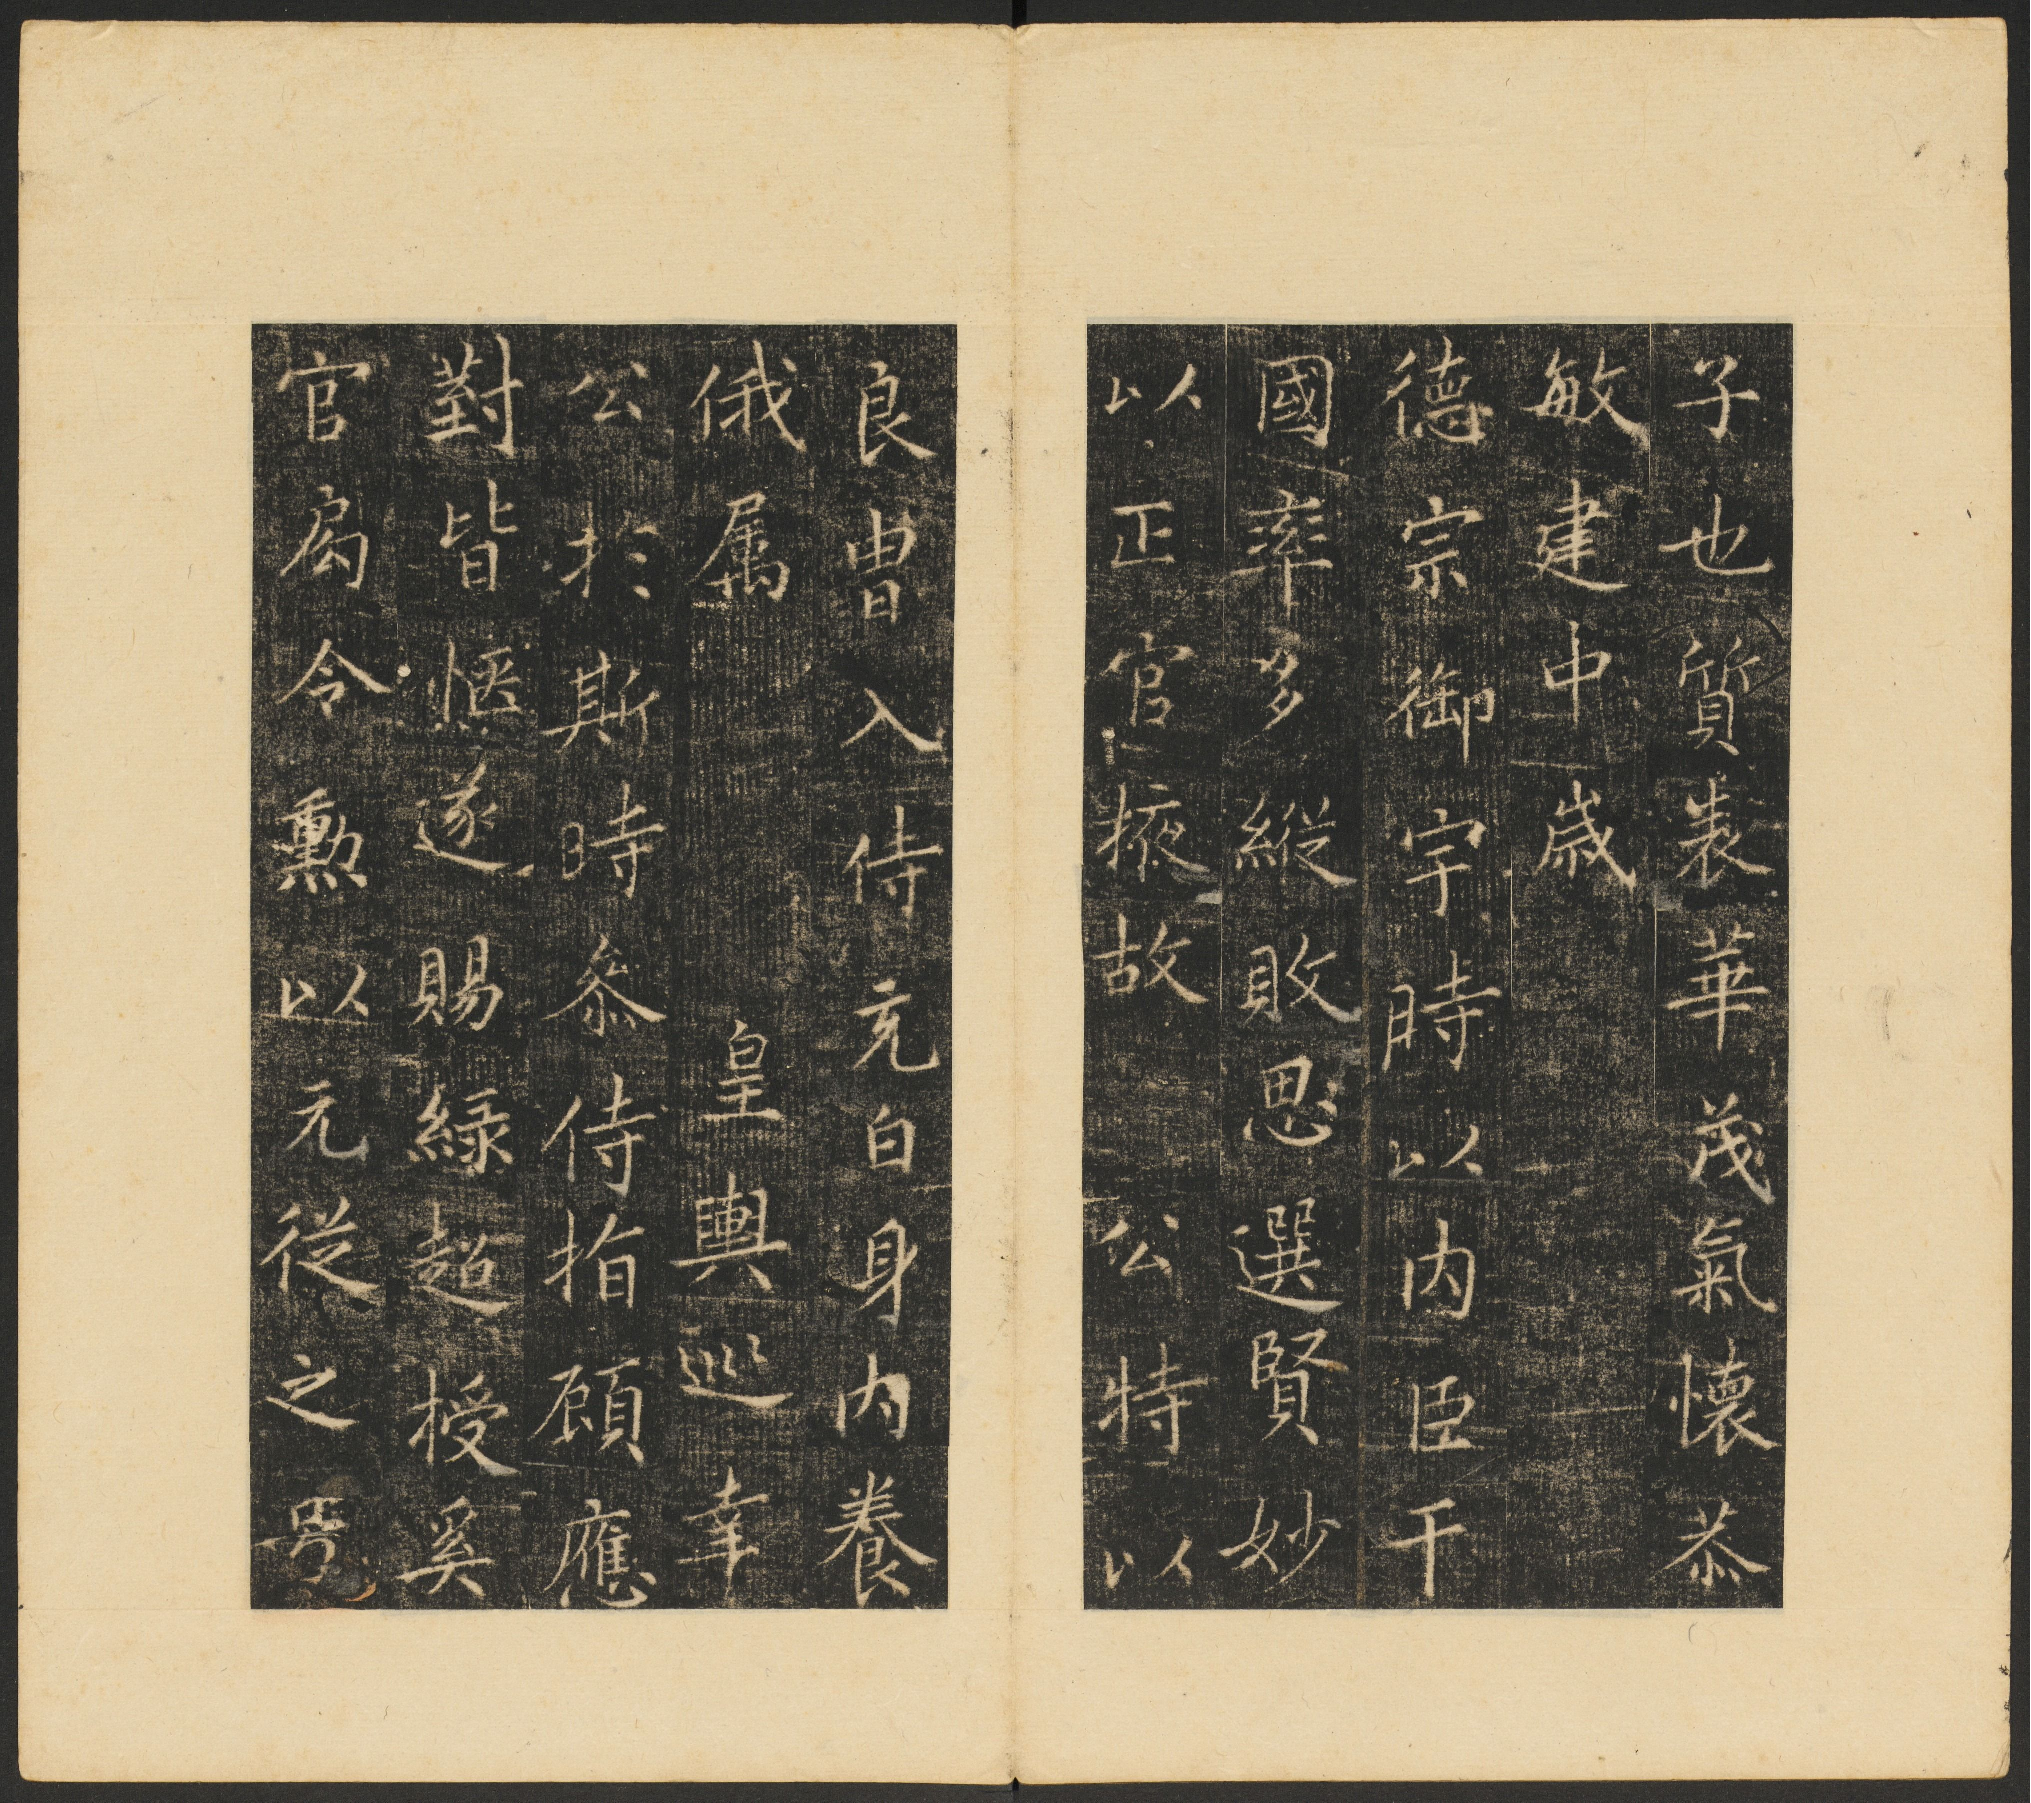 子也質裁華茂氣懷恭
敏建中歲
德宗御宇時以内臣干
國率多縱敗思選賢妙
以正官掖故公特以
良胄入侍充白身内養
俄属皇輿巡幸
公於斯時參侍指顧應
對皆愜遂賜緑超授奚
官局令勲以元従之号